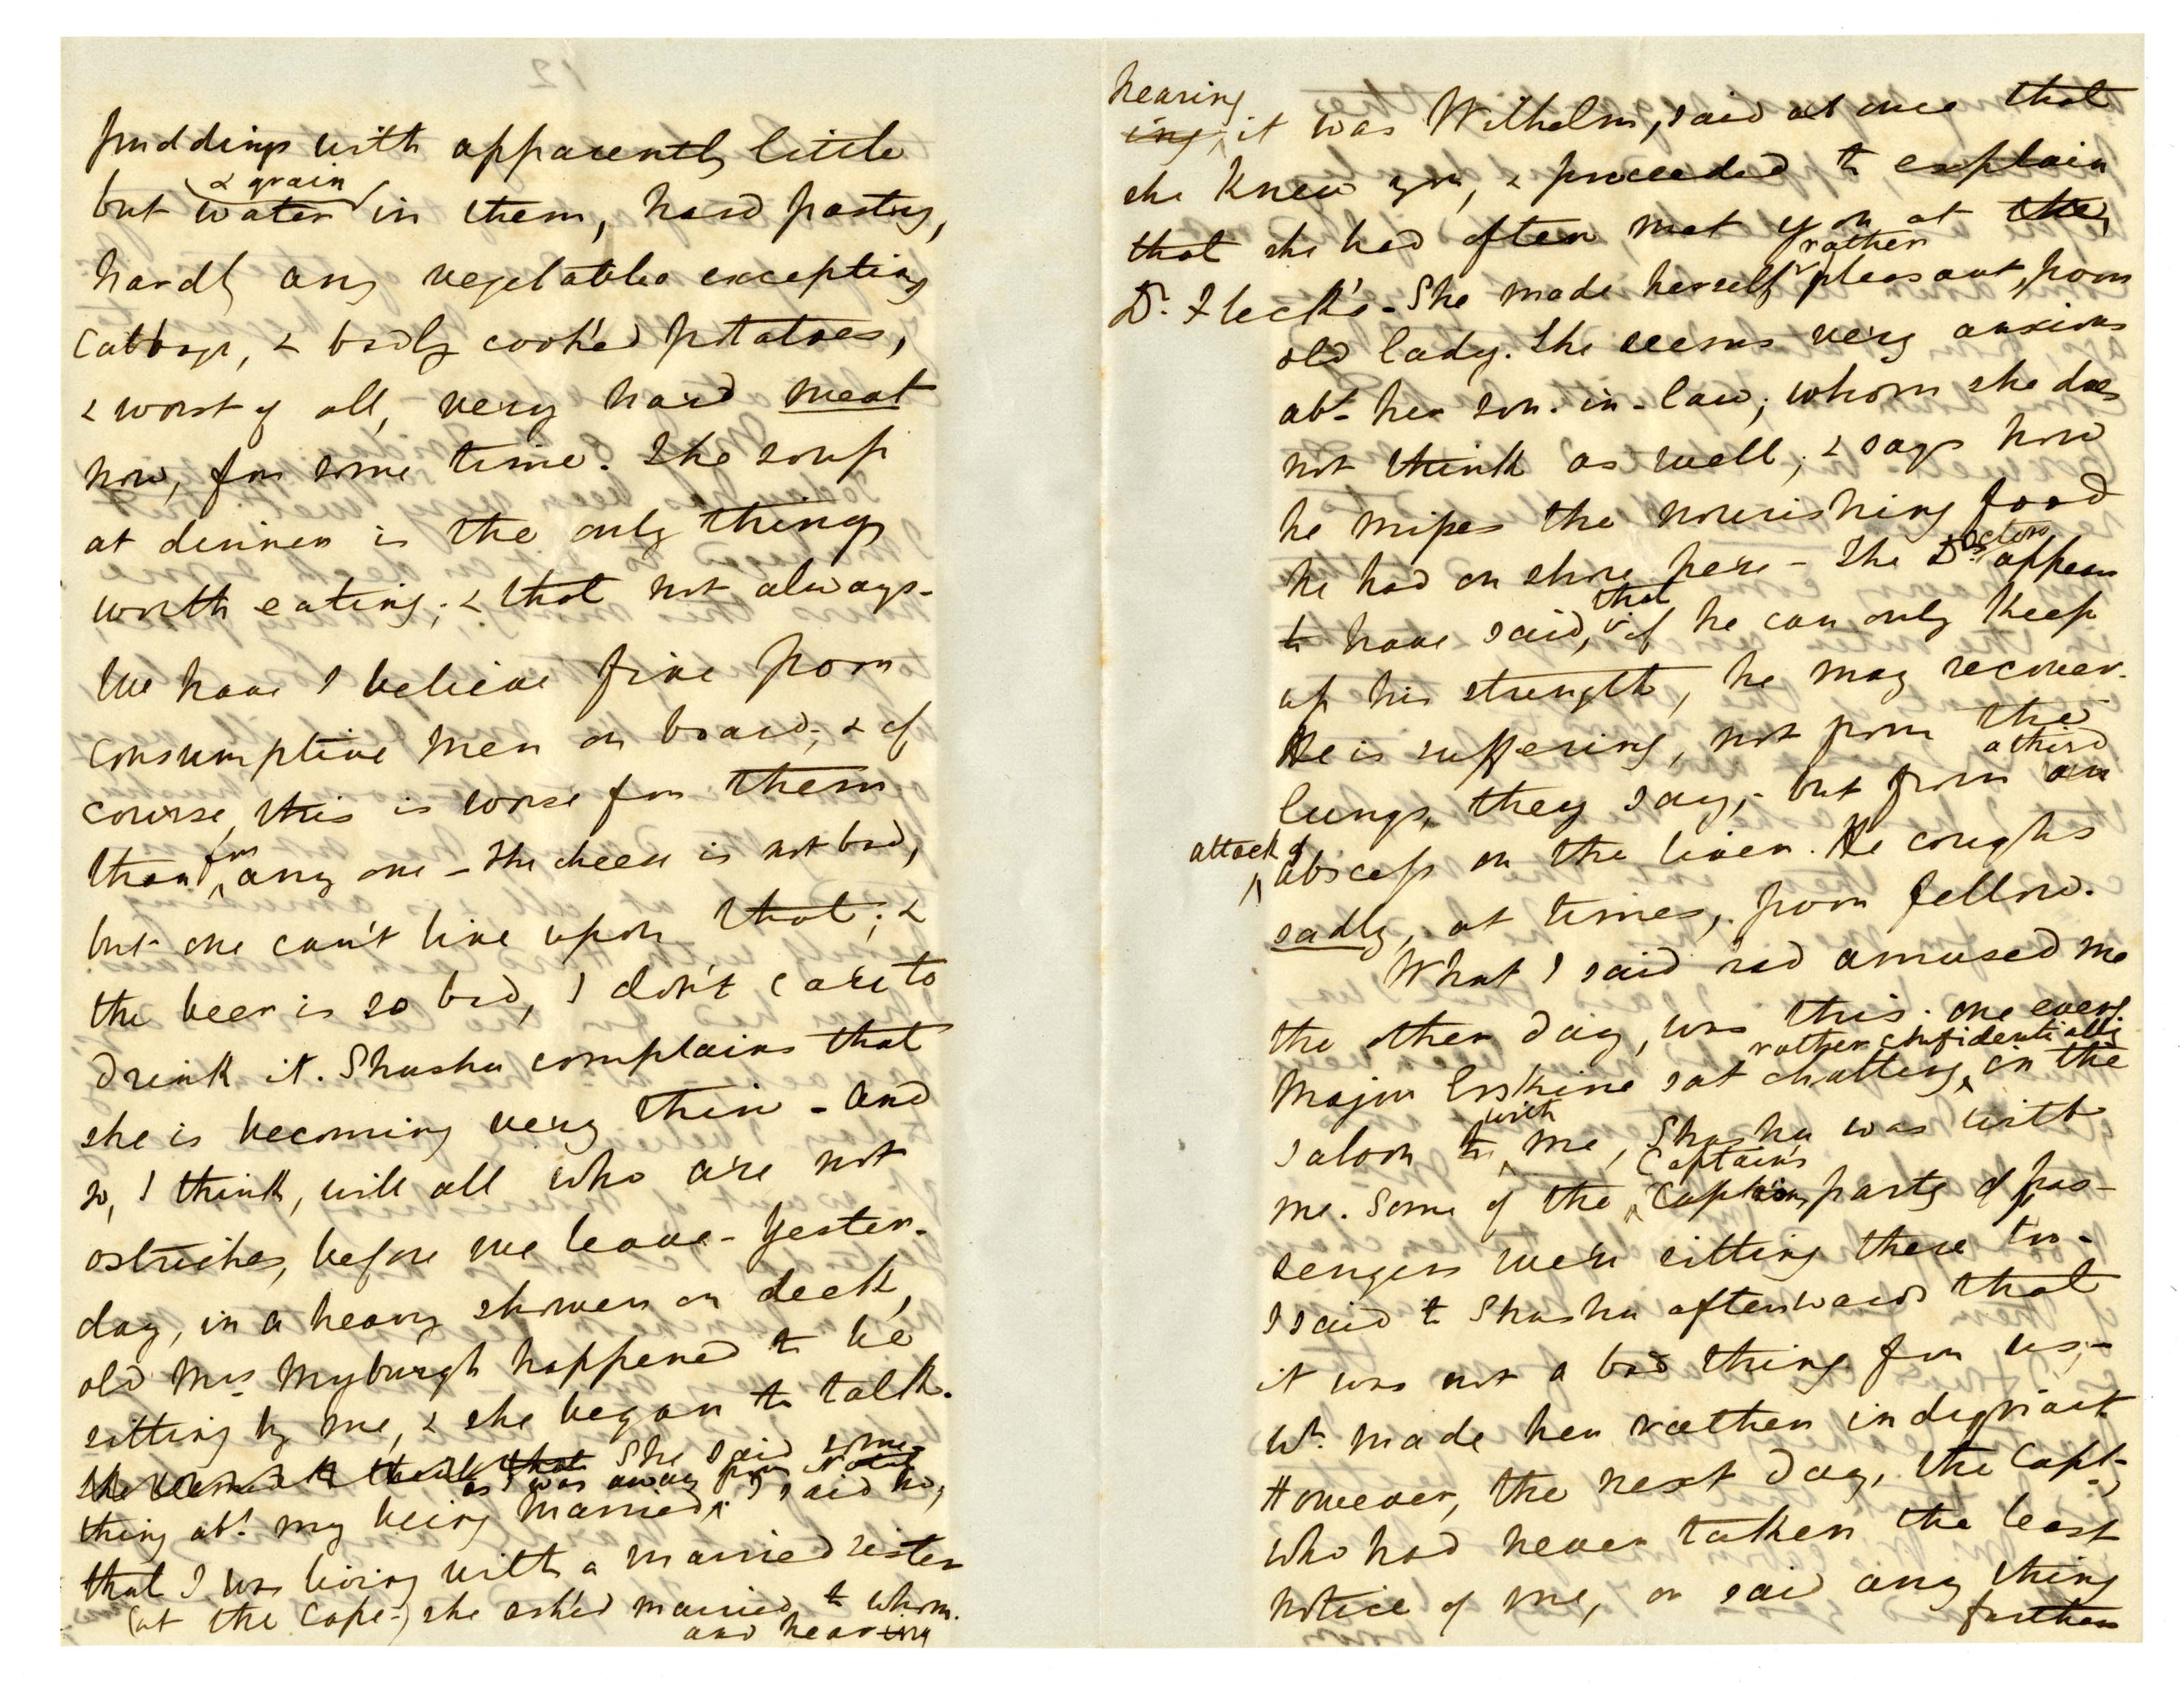 puddings with apparently little
& grain
but water in them, hard pastry,
hardly any vegetables excepting
cabbage, & badly cook'd potatoes,
& worst of all, very hard meat
now, for some time. The soup
at dinner is the only thing
worth eating; & that not always-
We have I believe five poor
consumptive men on board; & of
course, this is worse for them
than for any one - The cheese is not bad,
but one can't live upon that; &
the beer is so bad, I don't care to
drink it. Shushu complains that
she is becoming very thin - and
so, I think, will all who are not
ostriches, before we leave - Yester-
day, in a heavy shower on deck,
old Mrs Myburgh happened to be
sitting by me, & she began to talk.
She said some-
as I was away from
thing abt. my being married; I said no,
that I was living with a married sister
(at the Cape-) she ask'd married to whom.
and hearing
hearing
ing, it was Wilhelm, said at once that
she knew you, & proceeded to explain
that she had often met you at the
rather
Dr. Fleck's - She made herself pleasant, poor
old lady. She seems very anxious
abt. her son-in-law; whom she does
not think as well; & says how
he misses the nourishing food
he had on shore here - The Doctors appear
that
to have said, if he can only keep
up his strength, he may recover.
He is suffering, not from the
a third
lungs, they say; but from an
attack of
abscess on the liver. He coughs
sadly, at times, poor fellow.
What I said had amused me
the other day, was this. One eveng.
rather confidentially
Major Erskine sat chatting, in the
with
saloon to me, Shushu was with
Captain's
me. Some of the Captain's party of pas-
sengers were sitting there too-
I said to Shushu afterwards that
it was not a bad thing for us,-
wh. made her rather indignant
However, the next day, the Capt-,
who had never taken the least
notice of me, or said any thing
further